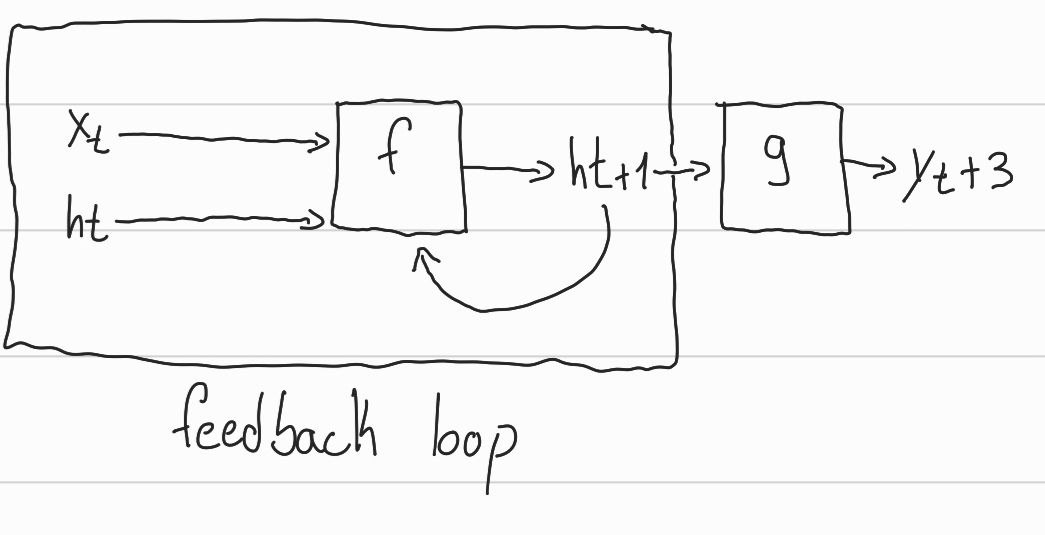 xt
f
ht+1
g
yt+3
ht
feedback loop